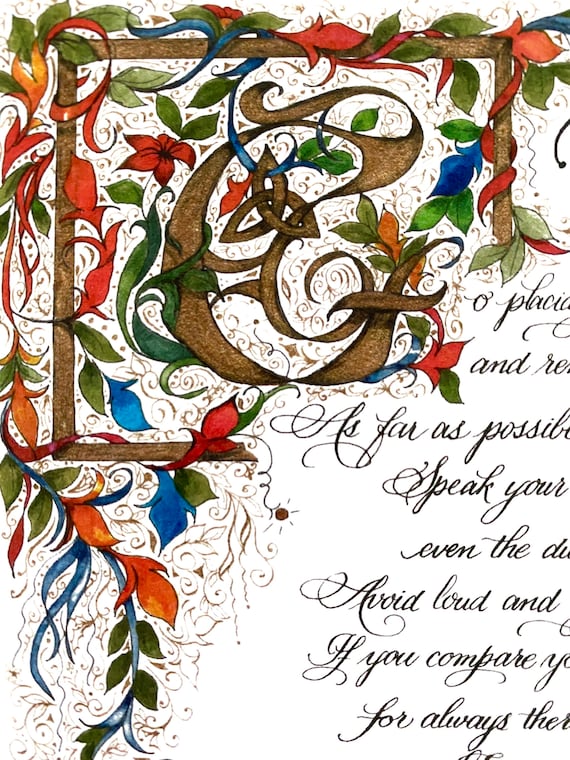 G
o placid
and rem
As far as possib
Speak your
even the du
Avoid loud and
If you compare yo
for always ther